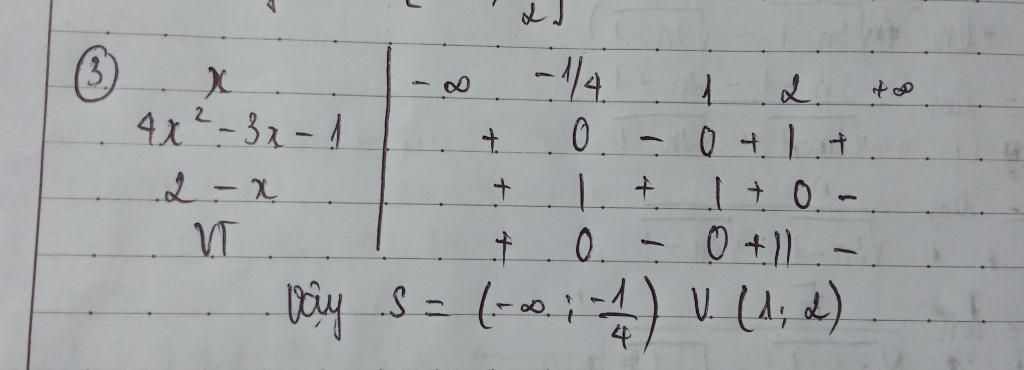 2]
③ x | -∞ -1/4 1 2 +∞
4x² - 3x - 1 | + 0 - 0 + | +
2 - x | + | + | + 0 -
VT | + 0 - 0 + || -
Vậy S = (-∞ ; -1/4) V (1; 2)